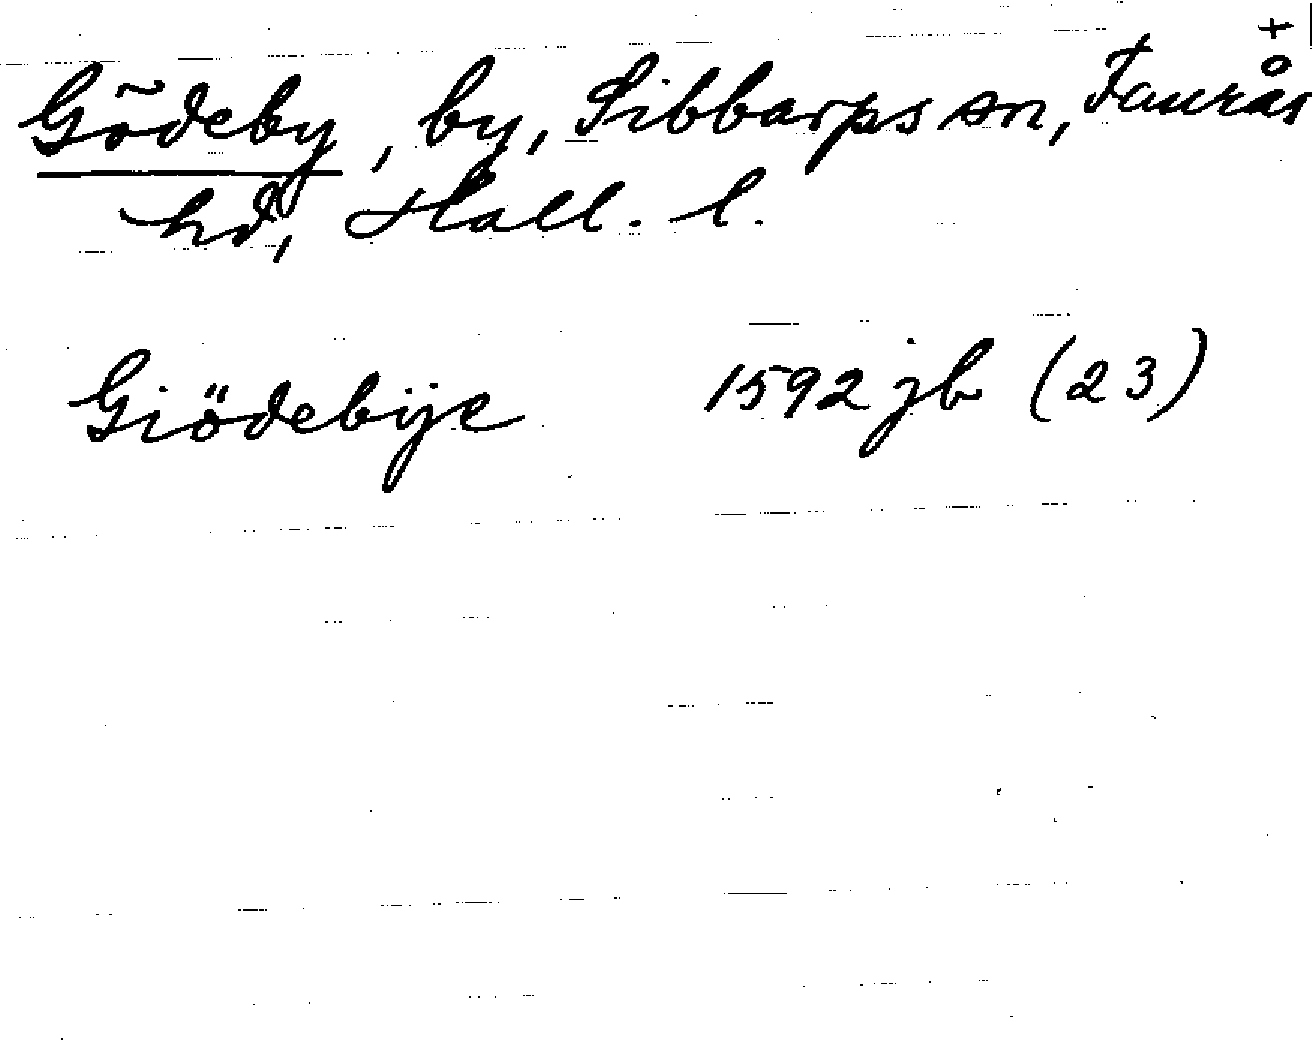 +
Gödeby, by, Sibbarps sn, Faurås
hd, Hall. l.
Giödebÿe 1592 jb (23)